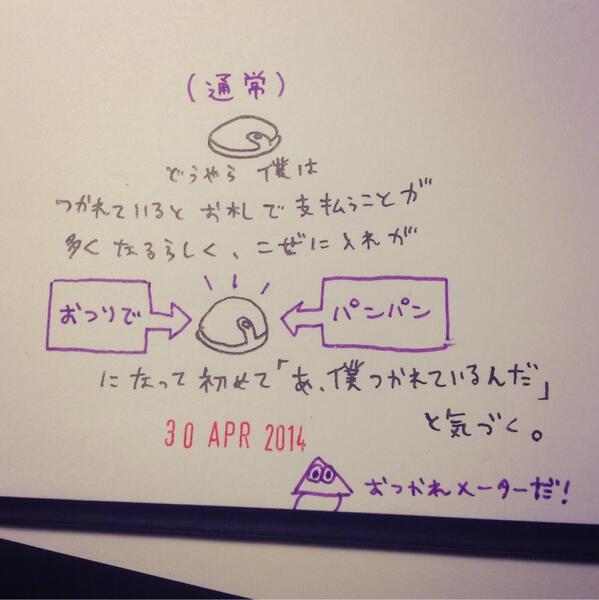 (通常)
どうやら僕は
つかれているとお札で支払うことが
多くなるらしく、こぜに入れが
おつりで
パンパン
になって初めて「あ、僕つかれているんだ」
と気づく。
30 APR 2014
おつかれメーターだ!